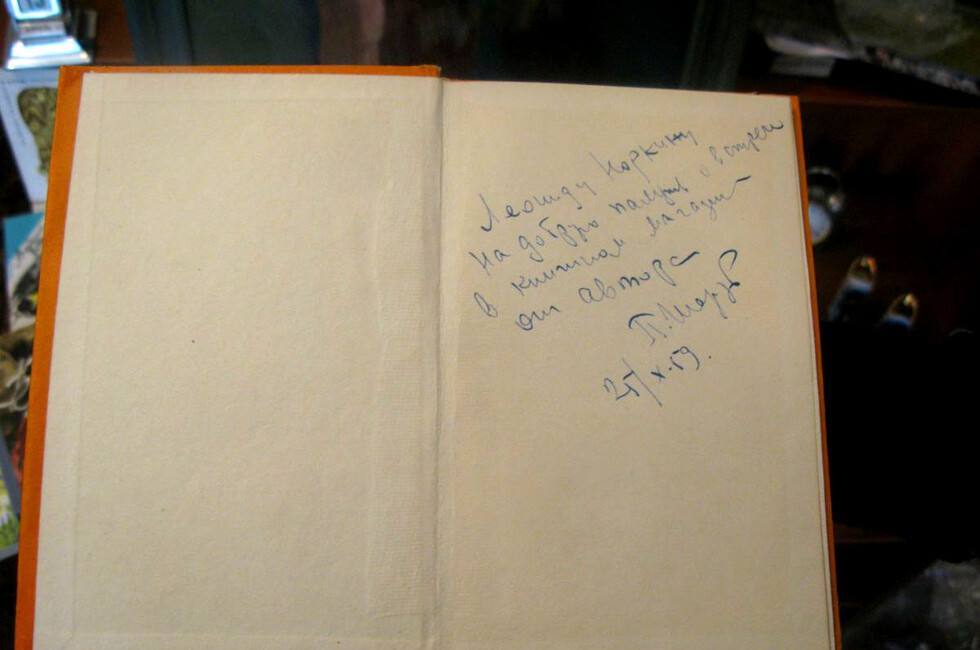 Леониду Норкину
На добрую память о встрече
в книжном магазине
от автора
П. 
25/X-59.